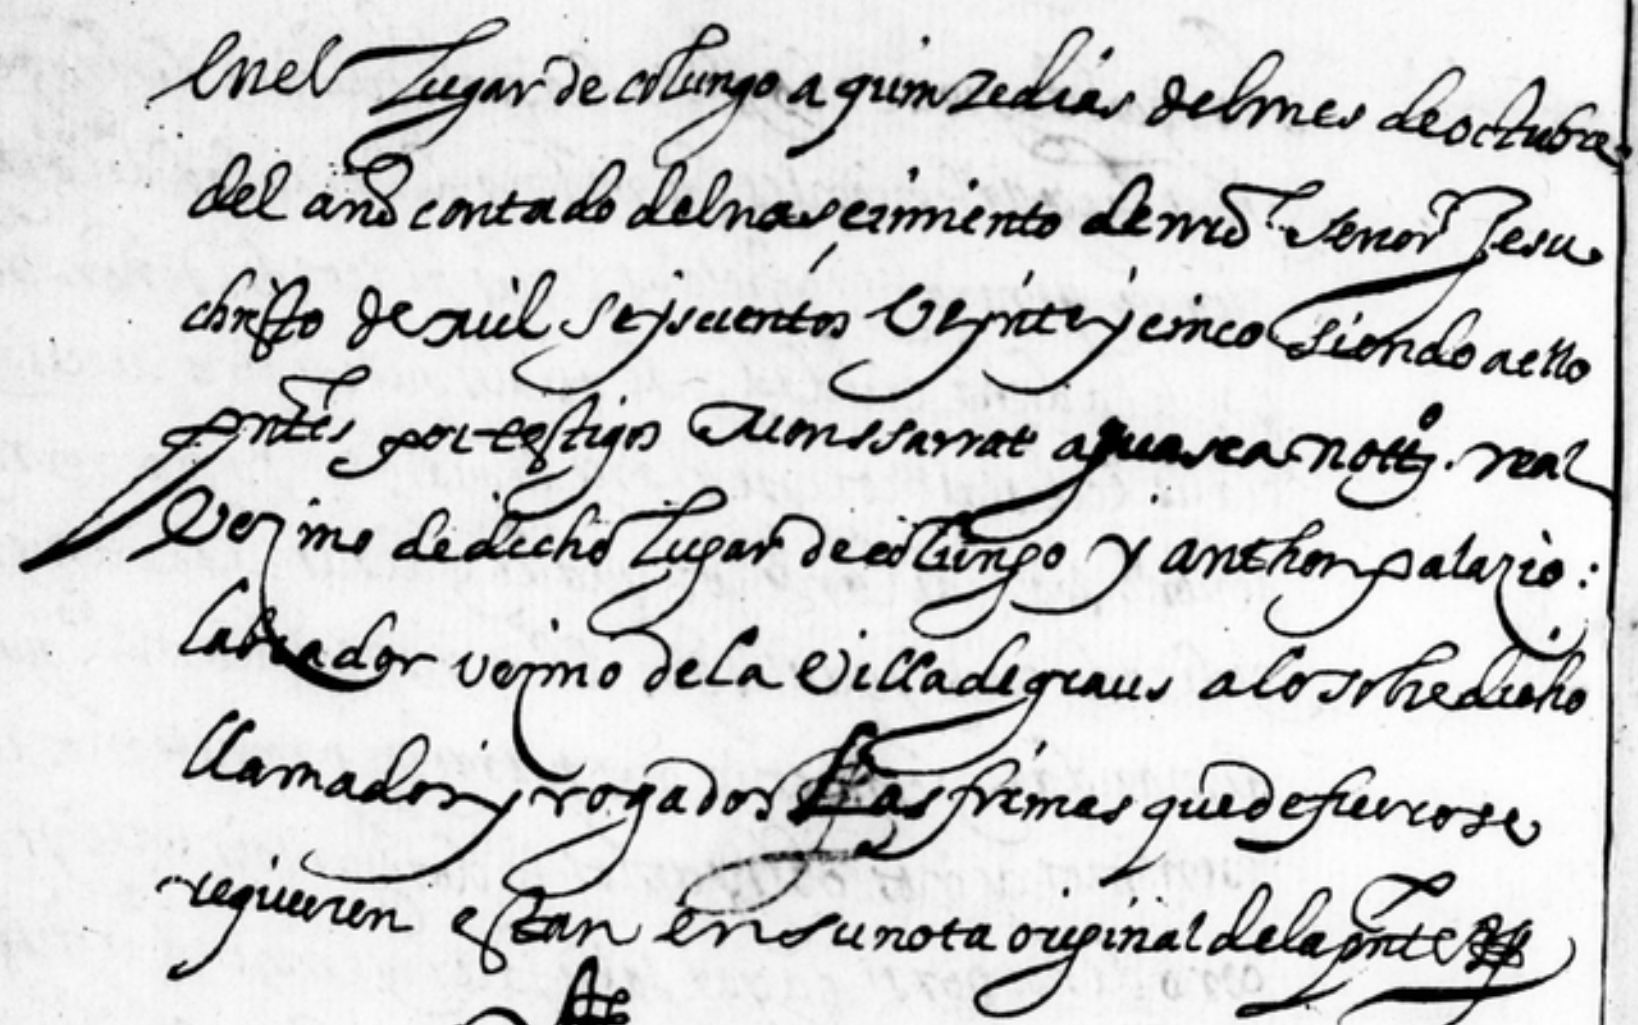 En el Lugar de colungo a quinze dias del mes de octubre
del año contado del nascimiento de nro Senor Jesu
christo de mil seyscientos Veynte y cinco siendo a ello
pntes por testigos Monssarrat aguasca notto. real
Vezino de dicho Lugar de colungo y anthon palazio:
labrador vezino de la Villa de graus a lo sobredicho
llamados y rogados Las firmas que de fuero se
requieren estan en su nota original de la pnte